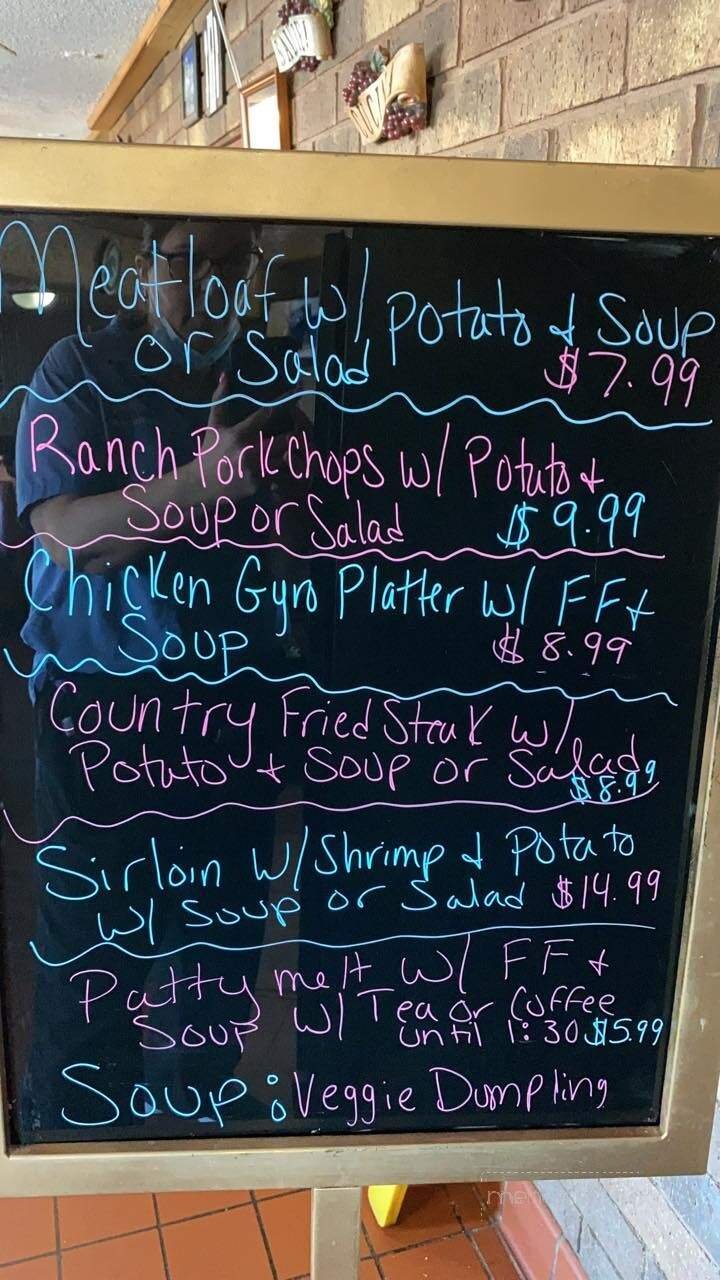 Meatloaf w/ potato & Soup
or Salad $7.99
Ranch Pork chops w/ Potato &
Soup or Salad $9.99
Chicken Gyro Platter w/ FF &
Soup $8.99
Country Fried Steak w/
Potato & Soup or Salad
$8.99
Sirloin w/ Shrimp & Potato
w/ Soup or Salad $14.99
Patty melt w/ FF &
Soup w/ Tea or Coffee
until 1:30 $5.99
Soup: Veggie Dumpling